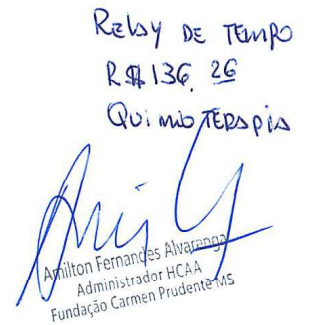 Relay DE TEMPO
R$ 136,26
QuimioTERApiA
Amilton Fernandes Alvarenga
Administrador HCAA
Fundação Carmen Prudente MS